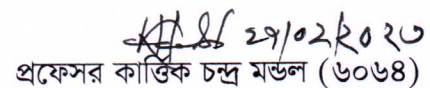 ২৭/০২/২০২৩
প্রফেসর কার্ত্তিক চন্দ্র মন্ডল (৬০৬৪)